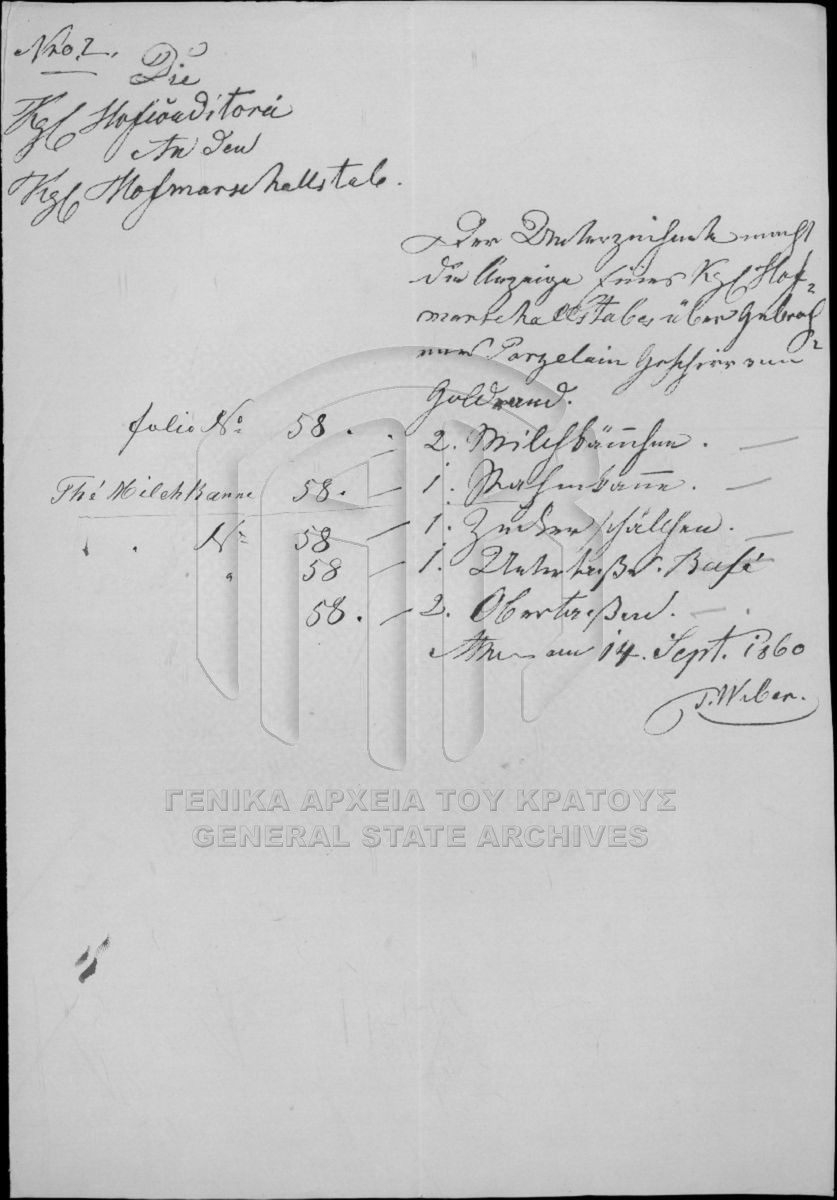 Nro. 2.
Die
Kgl Hofconditorei
An den
Kgl Hofmarschallstab.
Der Unterzeichnete macht
die Anzeige eines Kgl Hof-
marschallstabes über Gebroch-
enes Porzelain Geschirr von
Goldrand.
folio No 58. 2. Milchkännchen.
Thé Milchkanne 58. 1. Rahmkanne.
No 58 1. Zuckerschälchen.
" 58 1. Untertaße. Kafé
58. 2. Obertaßen.
Athen am 14. Sept. 1860
T. Weber.
ΓΕΝΙΚΑ ΑΡΧΕΙΑ ΤΟΥ ΚΡΑΤΟΥΣ
GENERAL STATE ARCHIVES